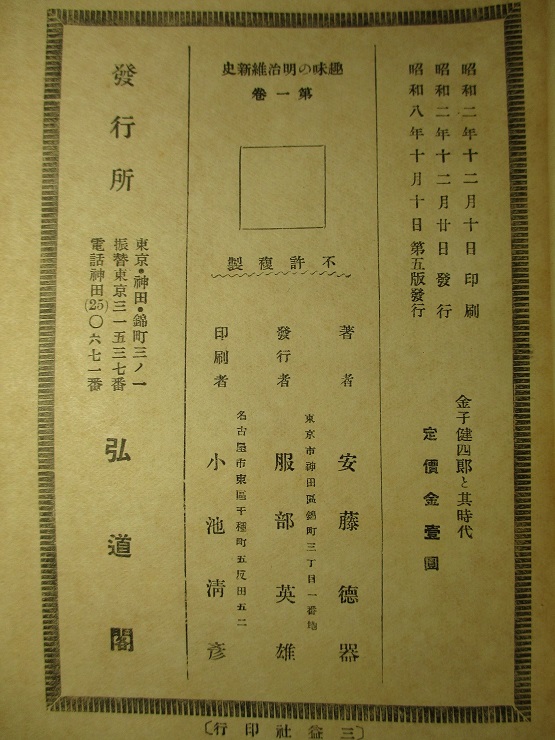 昭和二年十二月十日印刷
昭和二年十二月廿日發行
昭和八年十月十日第五版發行
金子健四郎と其時代
定價金壹圓
趣味の明治維新史
第一卷
不許複製
著者 安藤德器
東京市神田區錦町三丁目一番地
發行者 服部英雄
名古屋市東區千種町五反田五二
印刷者 小池淸彥
發行所
東京・神田・錦町三ノ一
振替東京三一五三七番
電話神田(25)〇六七一番
弘道閣
〔三益社印行〕